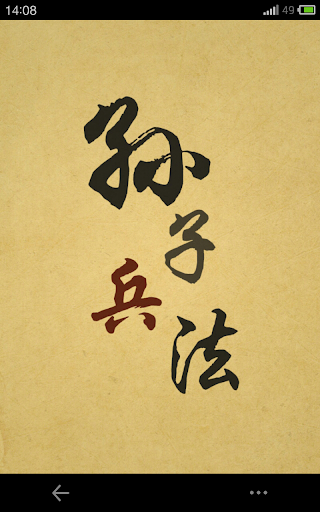 14:08
49
孙
子
兵
法